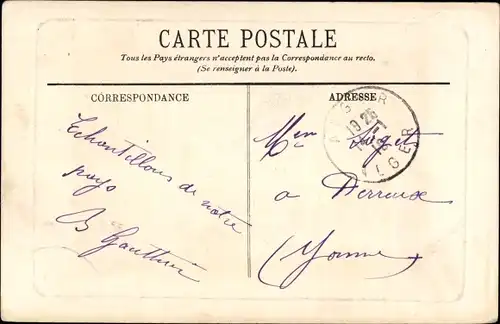 CARTE POSTALE
Tous les Pays étrangers n'acceptent pas la Correspondance au recto.
(Se renseigner à la Poste).
CORRESPONDANCE
ADRESSE
Echantillons de notre
pays
B Gauthier
ALGER
19 25
ALGER
à
(Yonne)